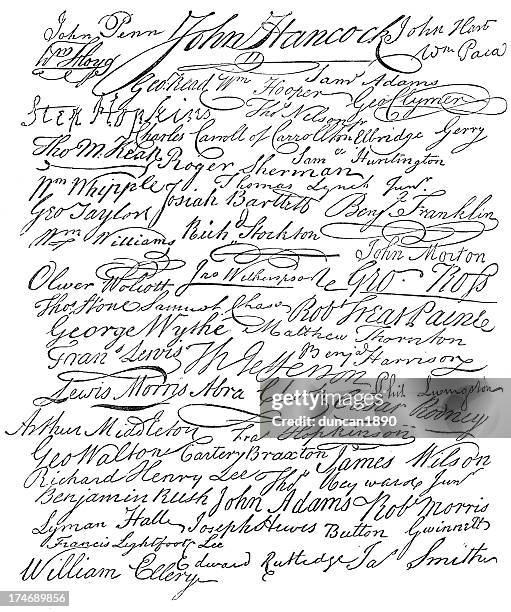 John Penn John Hancock John Hart
Wm Floyd Wm Paca
Geo Read Wm Hooper Saml Adams
Step Hopkins Thos Nelson jr Geo Clymer
Charles Carroll of Carrollton Elbridge Gerry
Tho M:Kean Roger Sherman Saml Huntington
Wm Whipple Thomas Lynch Junr.
Josiah Bartlett Benj Franklin
Geo Taylor
Wm Williams Richd Stockton
John Morton
Oliver Wolcott Jno Witherspoon Geo. Ross
Thos Stone Samuel Chase Robt Treat Paine
George Wythe Matthew Thornton
Frans. Lewis Th Jefferson Benj Harrison
Lewis Morris Abra Clark Phil. Livingston
Cæsar Rodney
Arthur Middleton Fras Hopkinson
Geo Walton Carter Braxton James Wilson
Richard Henry Lee Thos Heyward Junr.
Benjamin Rush John Adams Robt Morris
Lyman Hall Joseph Hewes Button Gwinnett
Francis Lightfoot Lee
William Ellery Edward Rutledge Jas Smith
gettyimages
Credit: duncan1890
174689856